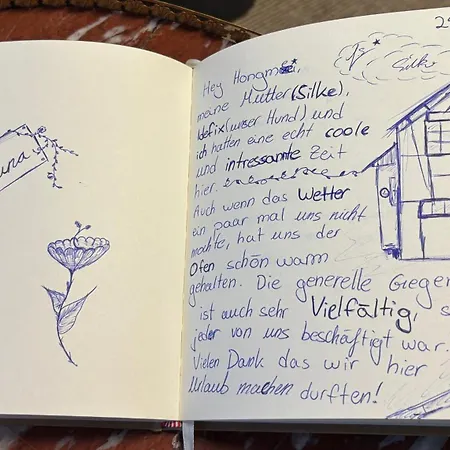 una
29
Silke
Hey Hongmei,
meine Mutter (Silke),
Idefix (unser Hund) und
ich hatten eine echt coole
und intressante Zeit
hier.
Auch wenn das Wetter
ein paar mal uns nicht
machte, hat uns der
Ofen schön warm
gehalten. Die generelle Gegen
ist auch sehr Vielfältig, s
jeder von uns beschäftigt war.
Vielen Dank das wir hier
Urlaub machen durften!